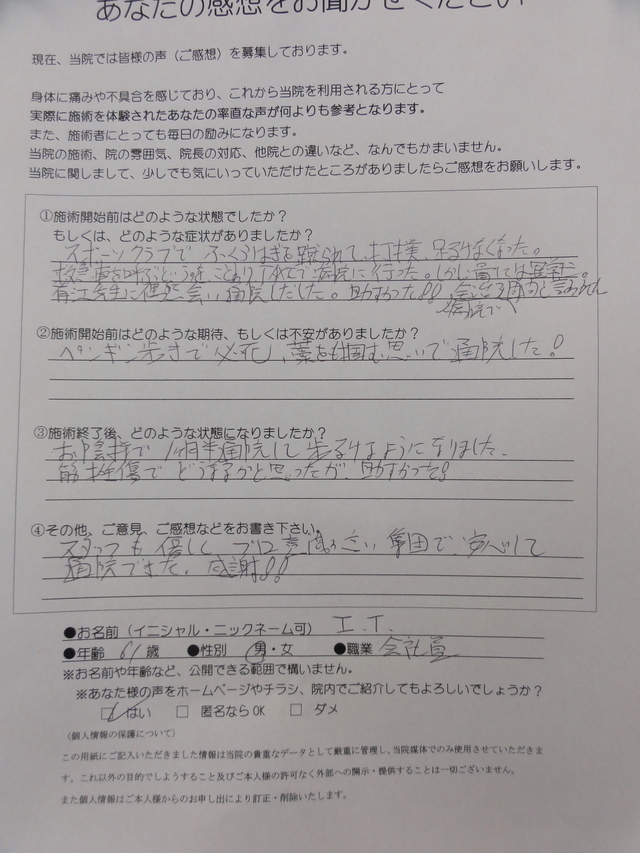 あなたの感想をお聞かせください
現在、当院では皆様の声（ご感想）を募集しております。
身体に痛みや不具合を感じており、これから当院を利用される方にとって
実際に施術を体験されたあなたの率直な声が何よりも参考となります。
また、施術者にとっても毎日の励みになります。
当院の施術、院の雰囲気、院長の対応、他院との違いなど、なんでもかまいません。
当院に関しまして、少しでも気にいっていただけたところがありましたらご感想をお願いします。
①施術開始前はどのような状態でしたか？
もしくは、どのような症状がありましたか？
スポーツクラブで ふくらはぎを蹴られて、打撲、歩るけなくなった。
救急車を呼ぶというのをことわりTAXで病院に行った。しかし骨には異常ニ。
有江先生に出会い通院しだした。助かった!! 全治3週間と言われた
病院で
②施術開始前はどのような期待、もしくは不安がありましたか？
ペンギン歩きで必死、藁をも掴む思いで通院した！
③施術終了後、どのような状態になりましたか？
お陰様で1ヶ月半通院して歩るけるようになりました。
筋挫傷でどうなるかと思ったが、助すかった!
④その他、ご意見、ご感想などをお書き下さい。
スタッフも優しく プロ意識の高い 集団で、安心して
通院できた。感謝!!
●お名前（イニシャル・ニックネーム可） I.T.
●年齢 61 歳 ●性別 男・女 ●職業 会社員
※お名前や年齢など、公開できる範囲で構いません。
※あなた様の声をホームページやチラシ、院内でご紹介してもよろしいでしょうか？
☑ はい □ 匿名ならOK □ ダメ
（個人情報の保護について）
この用紙にご記入いただきました情報は当院の貴重なデータとして厳重に管理し、当院媒体でのみ使用させていただきま
す。これ以外の目的でしようすること及びご本人様の許可なく外部への開示・提供することは一切ございません。
また個人情報はご本人様からのお申し出により訂正・削除いたします。